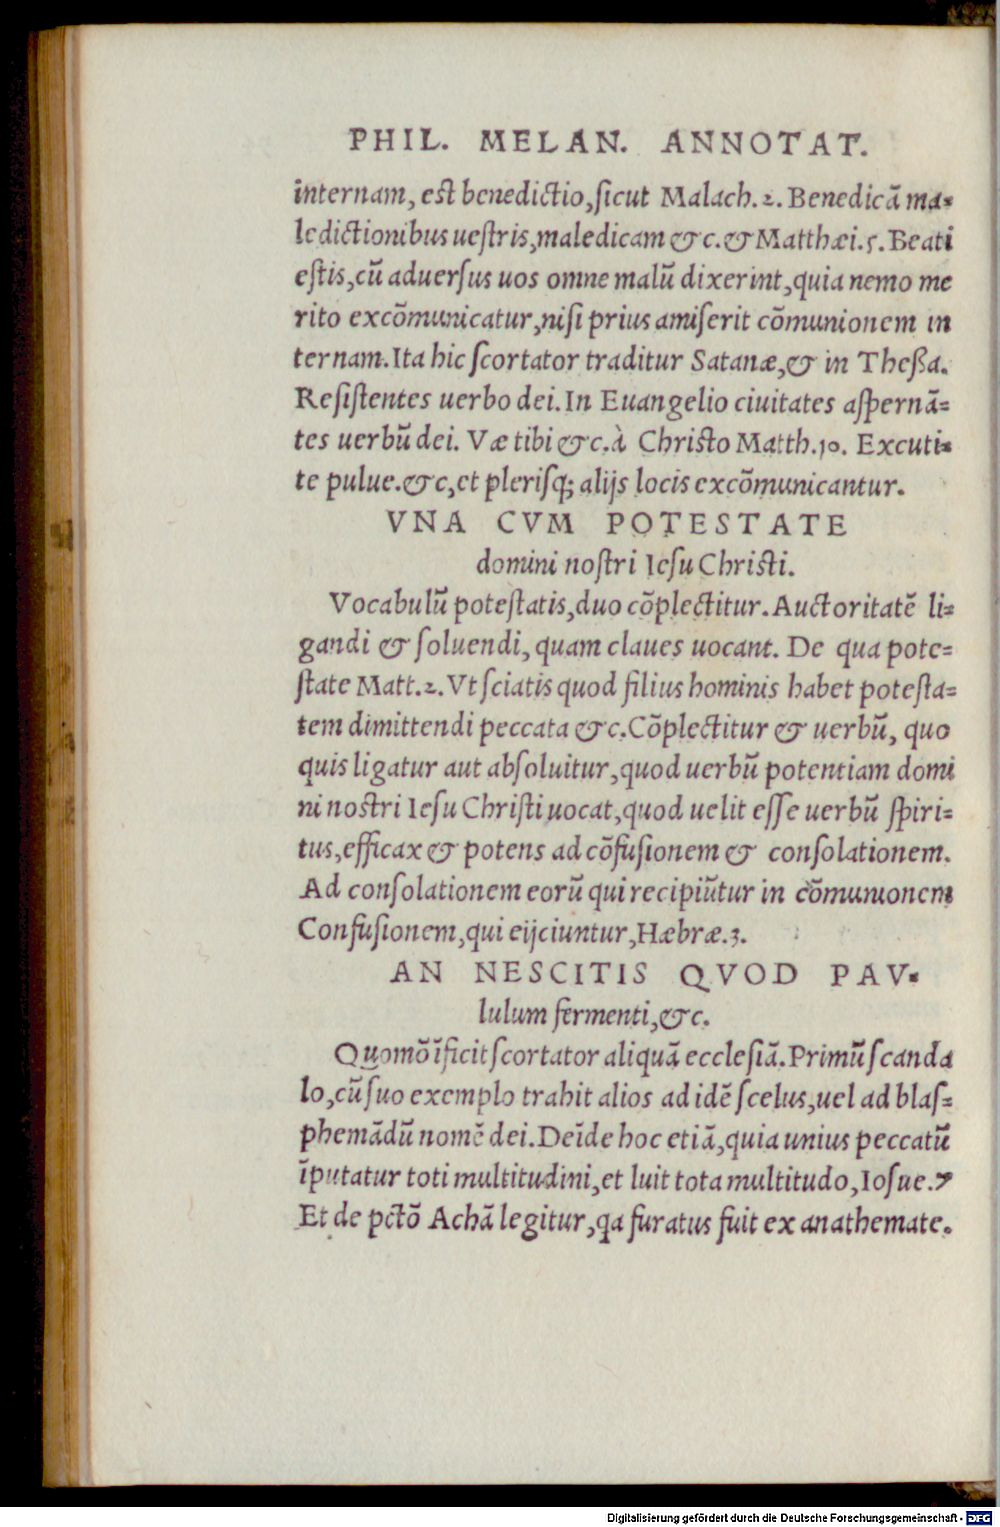 PHIL. MELAN. ANNOTAT.
internam, est benedictio, sicut Malach.2. Benedicā ma-
ledictionibus uestris, maledicam &c. & Matthæi.5. Beati
estis, cū aduersus uos omne malū dixerint, quia nemo me
rito excōmunicatur, nisi prius amiserit cōmunionem in
ternam. Ita hic scortator traditur Satanæ, & in Theßa.
Resistentes uerbo dei. In Euangelio ciuitates aspernā-
tes uerbū dei. Væ tibi &c. à Christo Matth.10. Excuti-
te pulue. &c, et plerisq; alijs locis excōmunicantur.
VNA CVM POTESTATE
domini nostri Iesu Christi.
Vocabulū potestatis, duo cōplectitur. Auctoritatē li-
gandi & soluendi, quam claues uocant. De qua pote-
state Matt.2. Vt sciatis quod filius hominis habet potesta-
tem dimittendi peccata &c. Cōplectitur & uerbū, quo
quis ligatur aut absoluitur, quod uerbū potentiam domi
ni nostri Iesu Christi uocat, quod uelit esse uerbū spiri-
tus, efficax & potens ad cōfusionem & consolationem.
Ad consolationem eorū qui recipiūtur in cōmunionem
Confusionem, qui eijciuntur, Hæbræ.3.
AN NESCITIS QVOD PAV-
lulum fermenti, &c.
Quomō īficit scortator aliquā ecclesiā. Primū scanda
lo, cū suo exemplo trahit alios ad idē scelus, uel ad blas-
phemādū nomē dei. Deīde hoc etiā, quia unius peccatū
īputatur toti multitudini, et luit tota multitudo, Iosue.7
Et de pctō Achā legitur, qa furatus fuit ex anathemate.
Digitalisierung gefördert durch die Deutsche Forschungsgemeinschaft - DFG